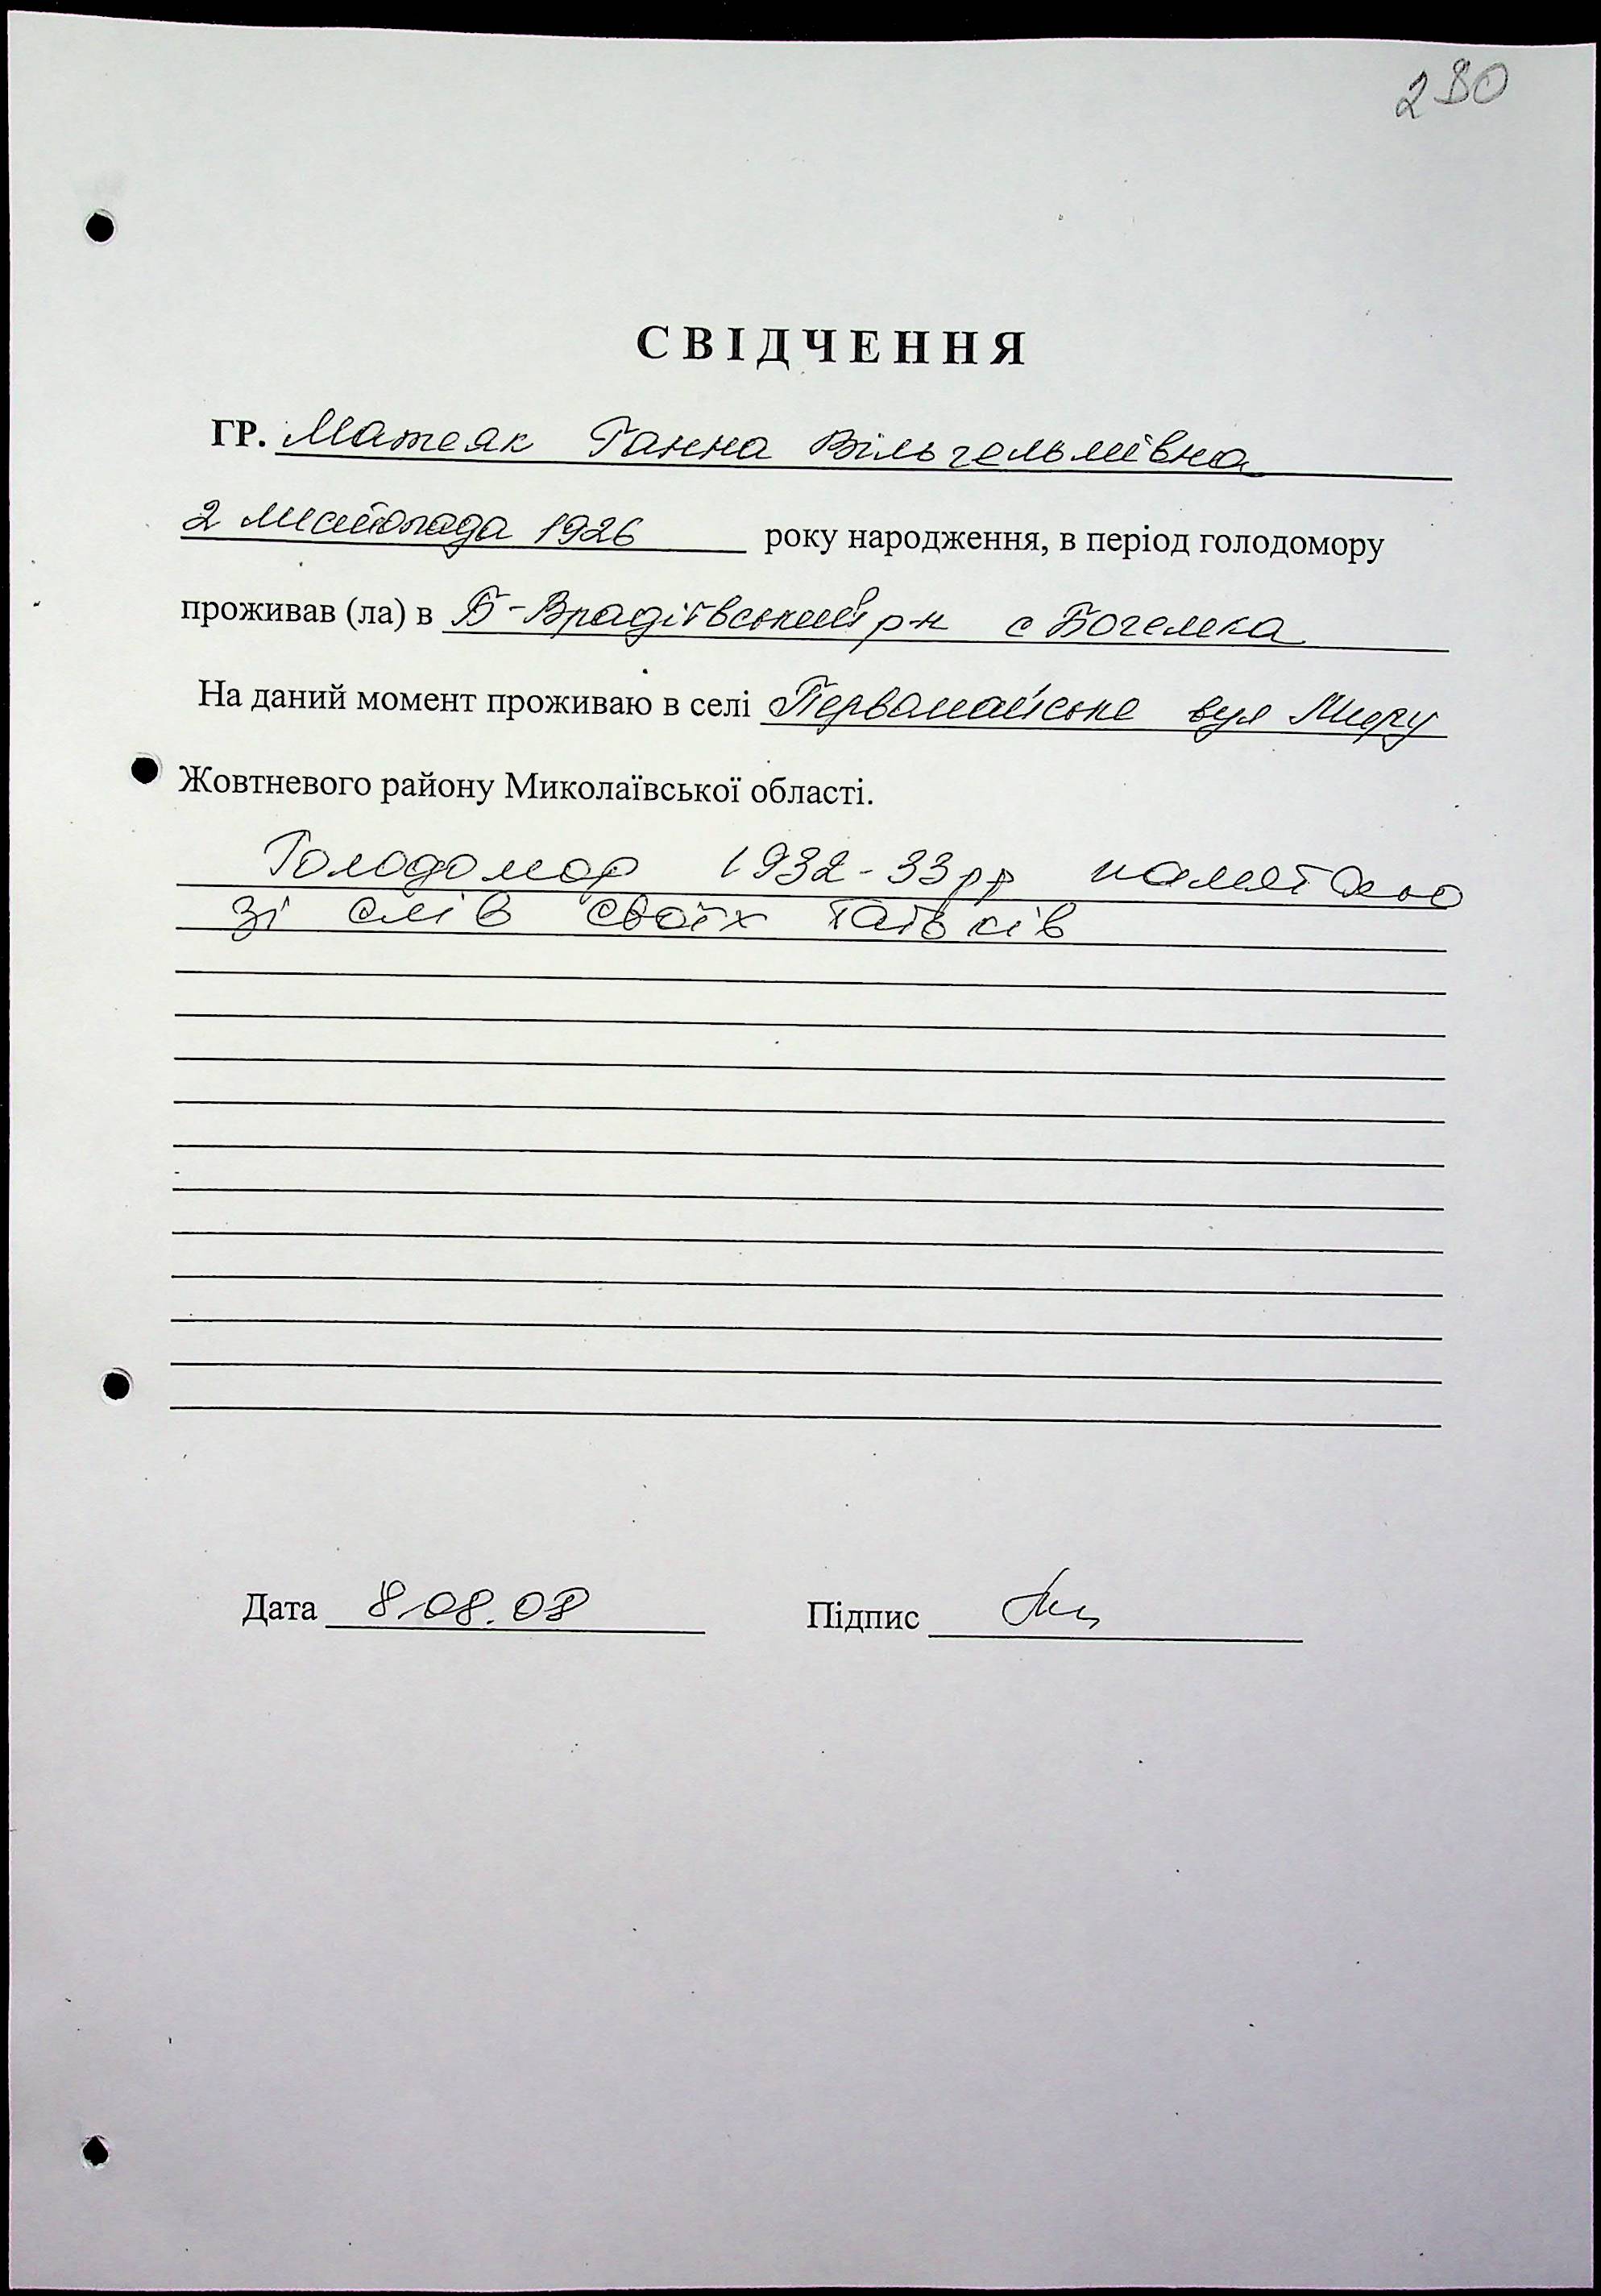 280
СВІДЧЕННЯ
ГР. Матеяк Ганна Вільгельмівна
2 листопада 1926 року народження, в період голодомору
проживав (ла) в Б-Врадіївський р-н с Богемка
На даний момент проживаю в селі Первомайське вул Миру
Жовтневого району Миколаївської області.
Голодомор 1932-33рр памятаю
зі слів своїх батьків
Дата 8.08.08 Підпис